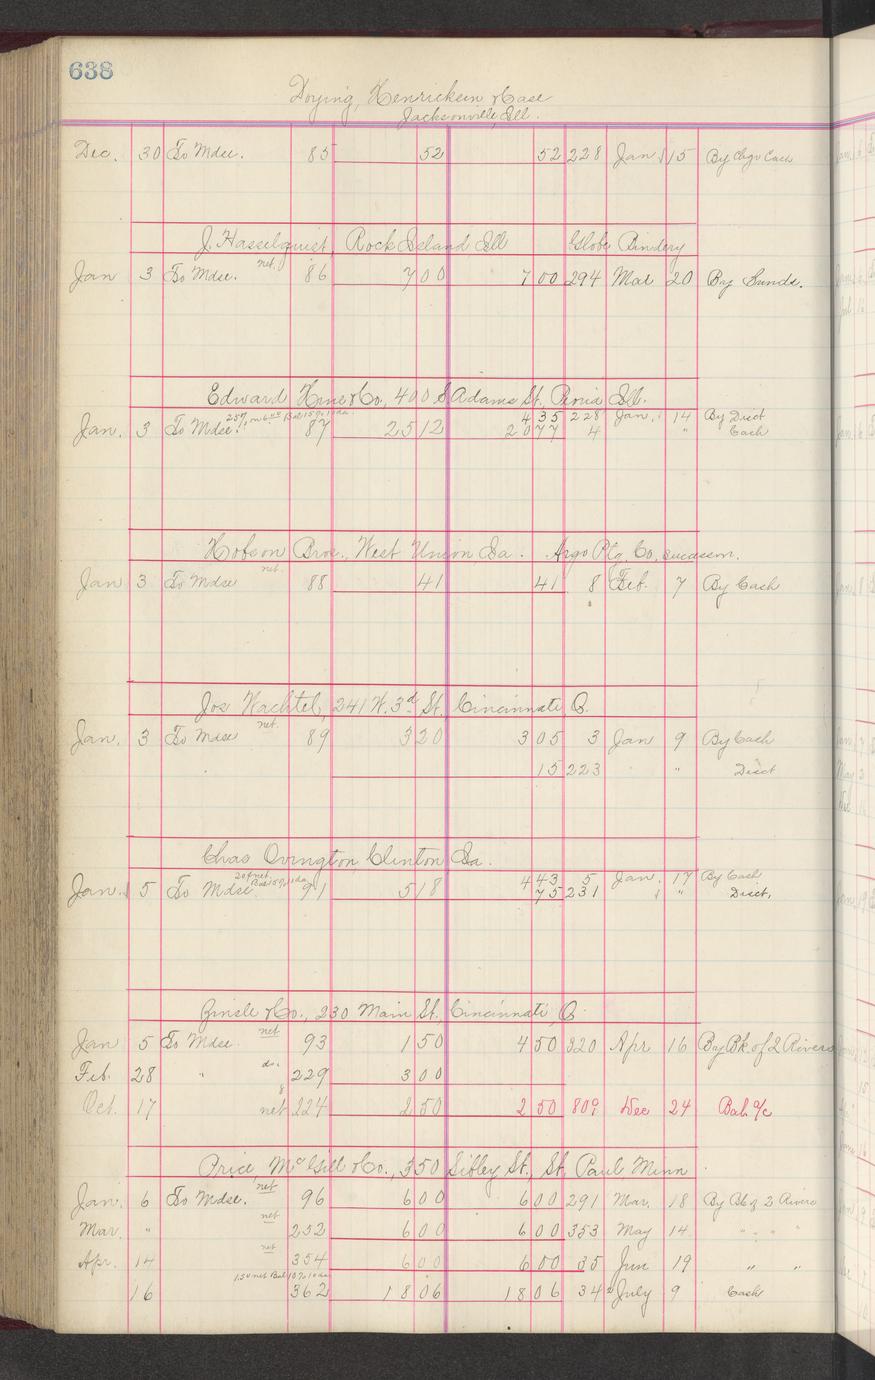 638
Doying, Henricksen & Case
Jacksonville, Ill.
Dec. 30 To Mdse. 85 52 52 228 Jan 15 By Chgs Cash
J. Hasselquist, Rock Island Ill Globe Bindery
Jan 3 To Mdse. net. 86 7 00 7 00 294 Mar 20 By Sunds.
Edward Hine & Co., 400 S Adams St. Peoria Ill.
4 35 228 Jan. 14 By Disct
Jan. 3 To Mdse. 87 25 12 20 77 4 " Cash
Hobson Bros., West Union Ia. Argo Ptg. Co. successors.
Jan 3 To Mdse net. 88 41 41 8 Feb. 7 By Cash
Jos Wachtel, 241 W. 3d St. Cincinnati O.
Jan. 3 To Mdse net. 89 3 20 3 05 3 Jan 9 By Cash
15 223 " Disct
Chas Ovington, Clinton Ia.
4 43 5 Jan. 17 By Cash
Jan. 5 To Mdse 91 5 18 75 231 " Disct.
& Co., 230 Main St. Cincinnati, O.
Jan 5 To Mdse. net 93 1 50 4 50 320 Apr 16 By Bk. of 2 Rivers
Feb. 28 " do. 229 3 00
Oct. 17 net 224 2 50 2 50 Dec 24 Bal. a/c
Price, McGill & Co., 350 Sibley St., St. Paul Minn
Jan. 6 To Mdse. net 96 6 00 6 00 291 Mar. 18 By Bk of 2 Rivers
Mar. " net 252 6 00 6 00 353 May 14 " " " "
Apr. 14 net 354 6 00 6 00 35 Jun 19 " "
16 1.50 net Bal 10% 10 da 362 18 06 18 06 34 July 9 Cash